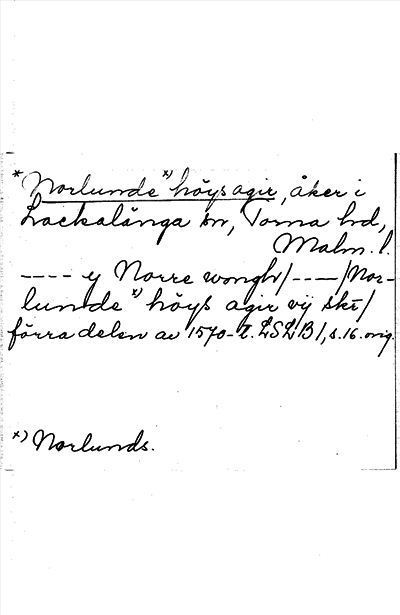 * Norlunde x) höys agir, åker i
Lackalänga sn, Torna hd,
Malm. l.
---- y Norre wongh/----/Nor-
lunde x) höyß agir vij skt/
förra delen av 1570-t. LSLB/, s. 16. orig.
x) Norlunds.